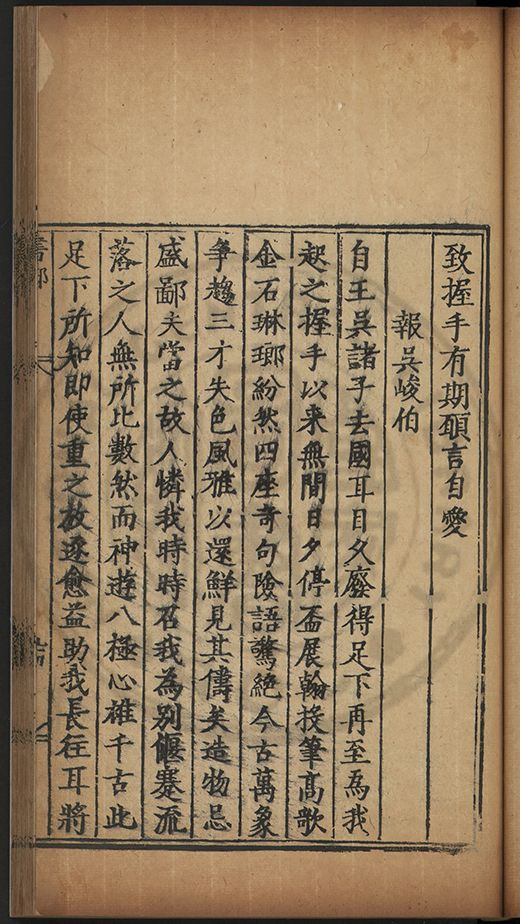 致握手有期願言自愛
報吳峻伯
自王吳諸子去國耳目久廢得足下再至為我
起之握手以来無間日夕停盃展翰投筆高歌
金石琳瑯紛然四座奇句險語驚絕今古萬象
爭趨三才失色風雅以還鮮見其儔矣造物忌
盛鄙夫當之故人憐我時時召我為別偃蹇流
落之人無所比數然而神遊八極心雄千古此
足下所知即使重之放逐愈益助我長往耳將